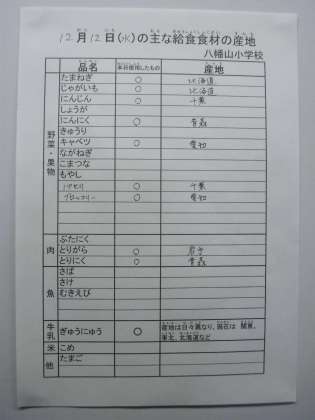 12月12日(水)の主な給食食材の産地
八幡山小学校
品名 本日使用したもの 産地
野菜・果物
たまねぎ ○ 北海道
じゃがいも ○ 北海道
にんじん ○ 千葉
しょうが
にんにく ○ 青森
きゅうり
キャベツ ○ 愛知
ながねぎ
こまつな
もやし
パセリ ○ 千葉
ブロッコリー ○ 愛知
肉
ぶたにく
とりがら ○ 岩手
とりにく ○ 青森
魚
さば
さけ
むきえび
牛乳 ぎゅうにゅう ○ 産地は日々異なり、現在は 関東、
東北、北海道など
米 こめ
他 たまご